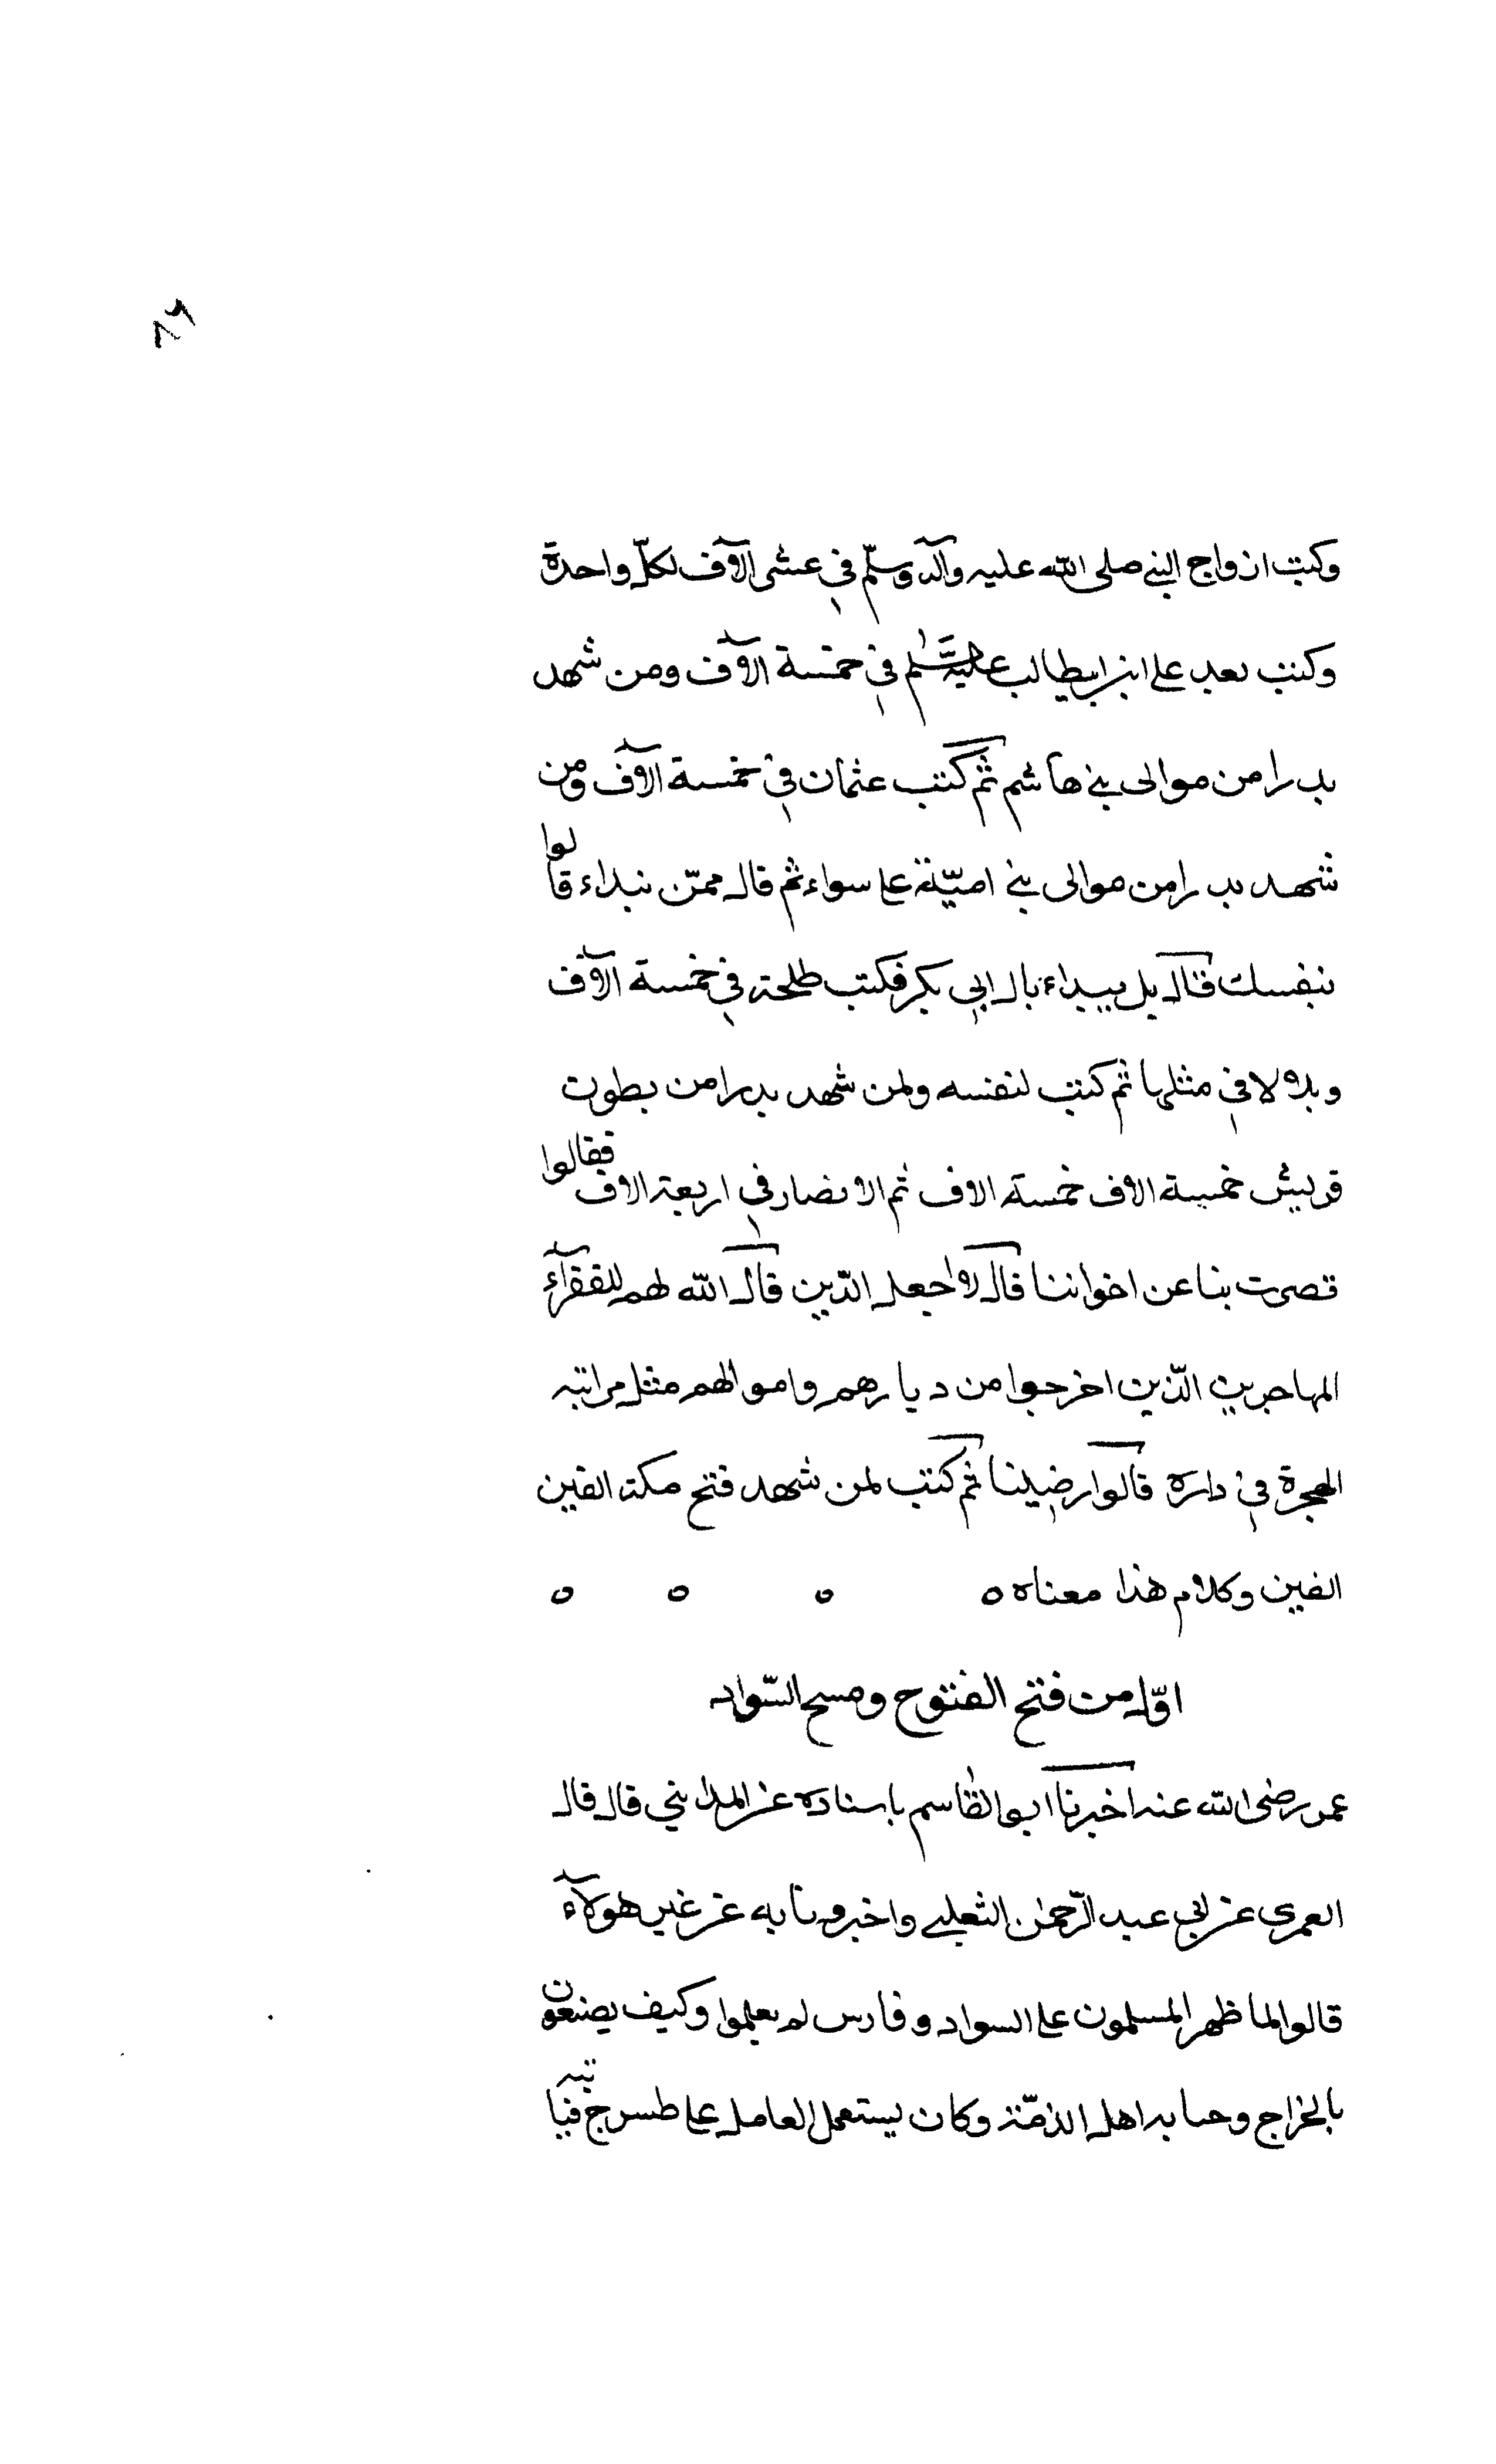 ٨٦
وكتب ازواج النبي صلى الله عليه وآله وسلّم في عشر آلاف لكلّ واحدة
وكتب بعد على ابن ابيطالب عليه السّلم في خمسة آلاف ومن شهد
بدرا من موالى بني هاشم ثمّ كتب عثمان في خمسة آلاف ومن
شهد بدرا من موالى بني اميّة على سواء ثم قال ممّن نبداء قالوا
بنفسك قال بل يبداء بال ابي بكر فكتب طلحة في خمسة آلاف
وبلالا في مثلها ثم كتب لنفسه ولمن شهد بدرا من بطون
قريش خمسة الاف خمسة الاف ثم الانصار في اربعة الاف فقالوا
قصرت بنا عن اخواننا قال لا اجعل الّذين قال الله لهم للفقرآء
المهاجرين الّذين اخرجوا من ديارهم واموالهم مثل من اتته
الهجرة في داره قالوا رضينا ثم كتب لمن شهد فتح مكة الفين
الفين وكلام هذا معناه ٥ ٥ ٥ ٥
اوّل من فتح الفتوح ومسح السّواد
عمر رضى الله عنه اخبرنا ابو القاسم باسناده عن المدايني قال قال
العمرى عن ابي عبد الرّحمن الثعلبي واخبرونا به عن غير هولآء
قالوا لما ظهر المسلمون على السواد وفارس لم يعلموا وكيف يصنعون
بالخراج وحبايه اهل الذمّة وكان يستعمل العامل على طسوج فياتيه